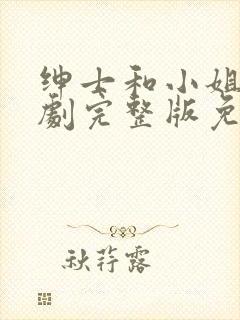 绅士和小姐
劇完整版免
秋荇露